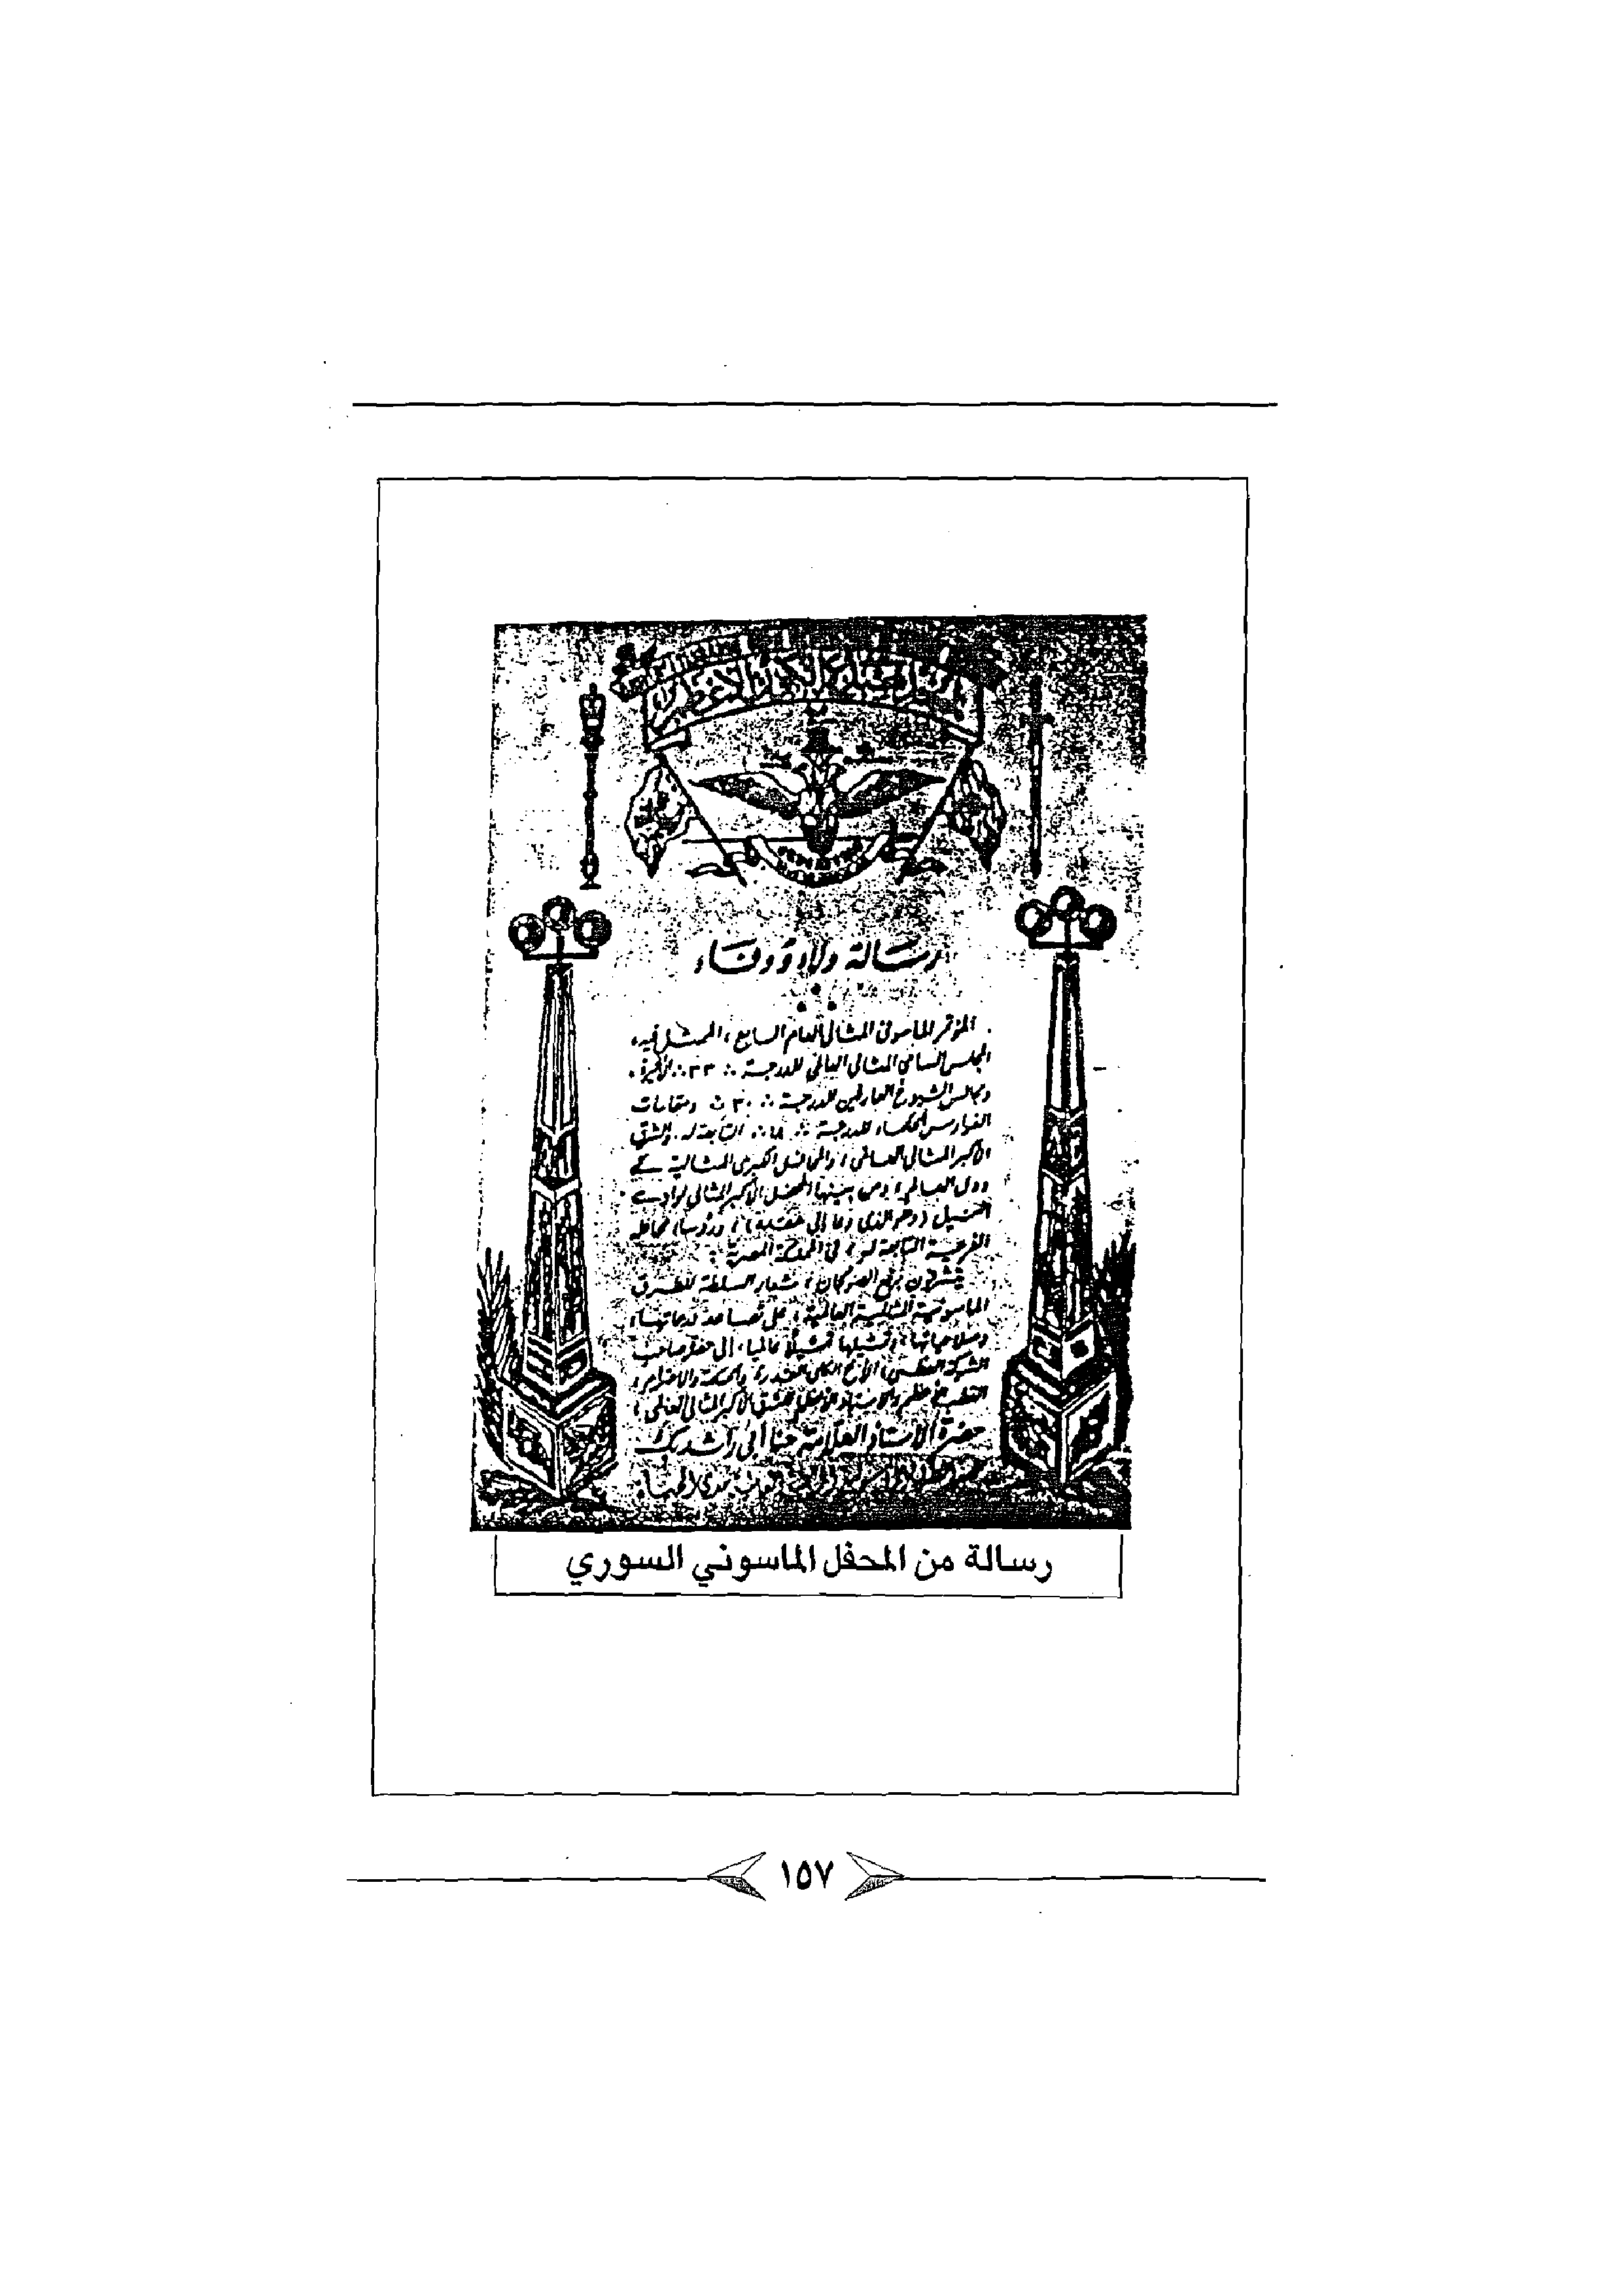 رسالة ولاء ووفاء
المؤتمر الماسوني المثالي العام السابع، الممثل فيه،
المجلس السامي المثالي العالمي للدرجة ∴ ٣٣ ∴ الأخيرة.
ومجالس الشيوخ العارفين للدرجة ∴ ٣٠ ∴ ومقامات
الفوارس الحكماء للدرجة ∴ ١٨ ∴ التابعة له. والشرق
الأكبر المثالي العالمي، والمحافل الكبرى المثالية في
دول العالم، ومن بينها المحفل الأكبر المثالي لوادي
النيل (وهو الذي دعا إلى عقده)، ورؤساء محافله
الفرعية التابعة له، في المملكة المصرية:
يتشرفون برفع الصولجان، شعار السلطة للطرق
الماسونية المثالية العالمية، على
وصلاحياتها، وتمثيلها تمثيلاً عالمياً، إلى حضرة صاحب
الشوكة العظمى، الأخ الكلي القدرة والحكمة والاحترام،
القطب الأعظم والأستاذ الأعظم للشرق الأكبر المثالي العالمي،
حضرة الأستاذ العلامة حنا أبي راشد بك
رسالة من المحفل الماسوني السوري
١٥٧